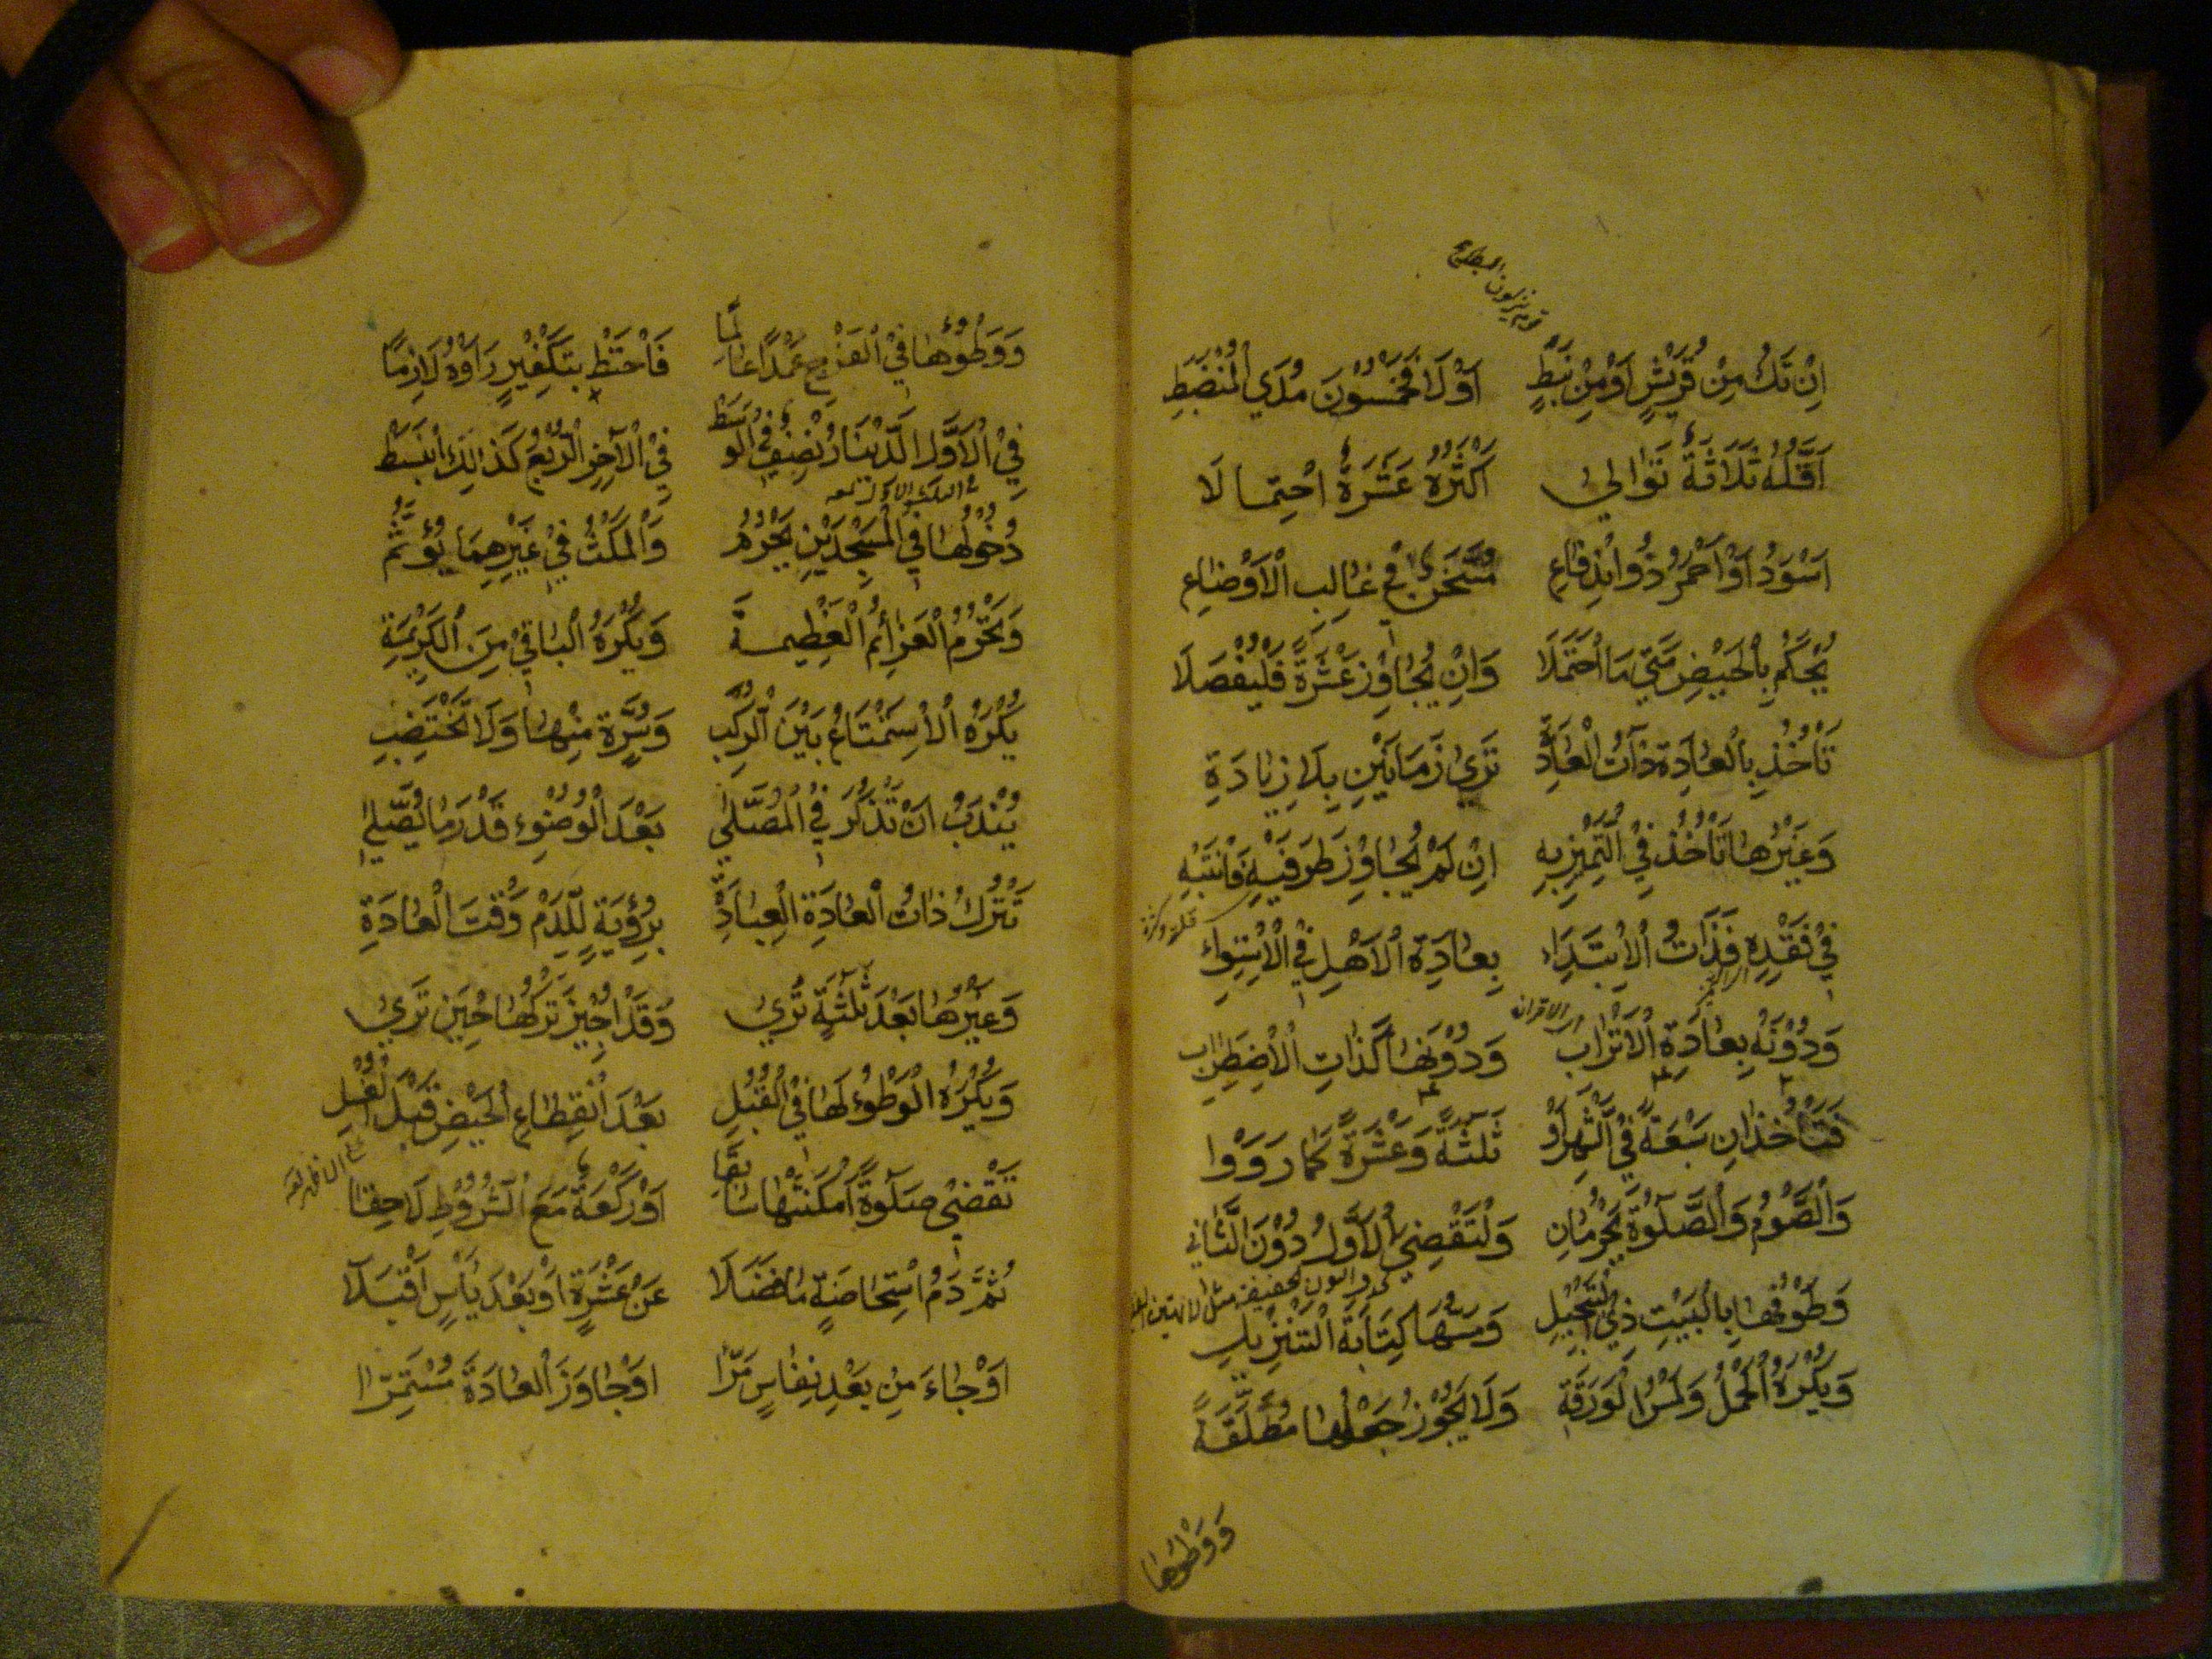 قوم ينزلون البطايح
اِنْ تَكُ مِنْ قُرَيْشٍ اَوْ مِنْ نَبَطٍ اَوْ لَا فَخَمْسُونَ مُدَي الْمُنْضَبِطِ
اَقَلُّهُ ثَلَاثَةٌ تَوَالِيْ اَكْثَرُهُ عَشَرَةٌ احْتِمَالَا
اَسْوَدُ اَوْ اَحْمَرُ ذُو انْدِفَاعِ مُسَخَّنٌ فِي غَالِبِ الْاَوْضَاعِ
يُحْكَمُ بِالْحَيْضِ مَتَي مَا احْتَمَلَا وَاِنْ يُجَاوِزْ عَشْرَةً فَلْيُفْصَلَا
تَأْخُذُ بِالْعَادَةِ ذَاتُ الْعَادَةِ تَرَي زَمَانَيْنِ بِلَا زِيَادَةِ
وَغَيْرُهَا تَأْخُذُ فِي التَّمْيِزِ بِهِ اِنْ لَمْ يُجَاوِزْ طَرَفَيْهِ فَانْتَبِهْ
قلة وكثرة
فِيْ فَقْدِهِ فَذَاتُ الْاِبْتِدَاءِ بِعَادَةِ الْاَهْلِ فِي الْاِسْتِوَاءِ
الاقران
وَدُوْنَهُ بِعَادَةِ الْاَتْرَابِ وَدُوْنَهَا كَذَاتِ الْاِضْطِرَابِ
فَتَأْخُذَانِ سَبْعَةً فِي الشَّهْرِ اَوْ ثَلٰثَةً وَعَشْرَةً كَمَا رَوَوْا
وَالصَّوْمُ وَالصَّلٰوةُ يَحْرُمَانِ وَلْتَقْضِيَ الْاَوَّلَ دُوْنَ الثَّانِي
وَطَوْفُهَا بِالْبَيْتِ ذِي التَّبْجِيْلِ وَمَسُّهَا كِتَابَةَ التَّنْزِيْلِ
وَيُكْرَهُ الْحَمْلُ وَلَمْسُ الْوَرَقَةِ وَلَا يَجُوْزُ جَعْلُهَا مُطَلَّقَةً
وَوَطْؤُهَا
وَوَطْؤُهَا فِي الْفَرْجِ عَمْدًا عَالِمًا فَاحْتَطْ بِتَكْفِيْرٍ رَاَوْهُ لَازِمًا
فِي الْاَوَّلِ الدِّيْنَارُ نِصْفٌ فِي الْوَسَطْ فِيْ الْآخِرِ الرُّبْعُ كَذٰلِكَ انْبَسَطْ
دُخُوْلُهَا فِي الْمَسْجِدَيْنِ يَحْرُمُ وَالْمَكْثُ فِيْ غَيْرِهِمَا يُؤَثَّمُ
وَتَحْرُمُ الْعَزَائِمُ الْعَظِيمَةُ وَيُكْرَهُ الْبَاقِيْ مِنَ الْكَرِيْمَةِ
يُكْرَهُ الْاِسْتِمْتَاعُ بَيْنَ الرُّكَبِ وَسُرَّةٍ مِنْهَا وَلَا تَخْتَضِبِ
يُنْدَبُ اَنْ تَذْكُرَ فِي الْمُصَلّٰي بَعْدَ الْوُضُوْءِ قَدْرَ مَا يُصَلّٰي
تَتْرُكُ ذَاتُ الْعَادَةِ الْعِبَادَةْ بِرُؤْيَةٍ لِلدَّمِ وَقْتَ الْعَادَةِ
وَغَيْرُهَا بَعْدَ ثَلٰثَةٍ تُرَيْ وَقَدْ اُجِيْزَ تَرْكُهَا حِيْنَ تَرَيْ
وَيُكْرَهُ الْوَطْؤُ لَهَا فِي الْقُبُلِ بَعْدَ انْقِطَاعِ الْحَيْضِ قَبْلَ الْغُسْلِ
تَقْضِيْ صَلٰوةً اَمْكَنَتْهَا سَابِقَا اَوْ رَكْعَةً مَعَ الشُّرُوْطِ لَاحِقَا
ثُمَّ دَمُ اسْتِحَاضَةٍ مَا فَضَلَا عَنْ عَشْرَةٍ اَوْ بَعْدَ يَأْسٍ اَقْبَلَا
اَوْ جَاءَ مِنْ بَعْدِ نِفَاسٍ مَرَّا اَوْ جَاوَزَ الْعَادَةَ مُسْتَمِرَّا